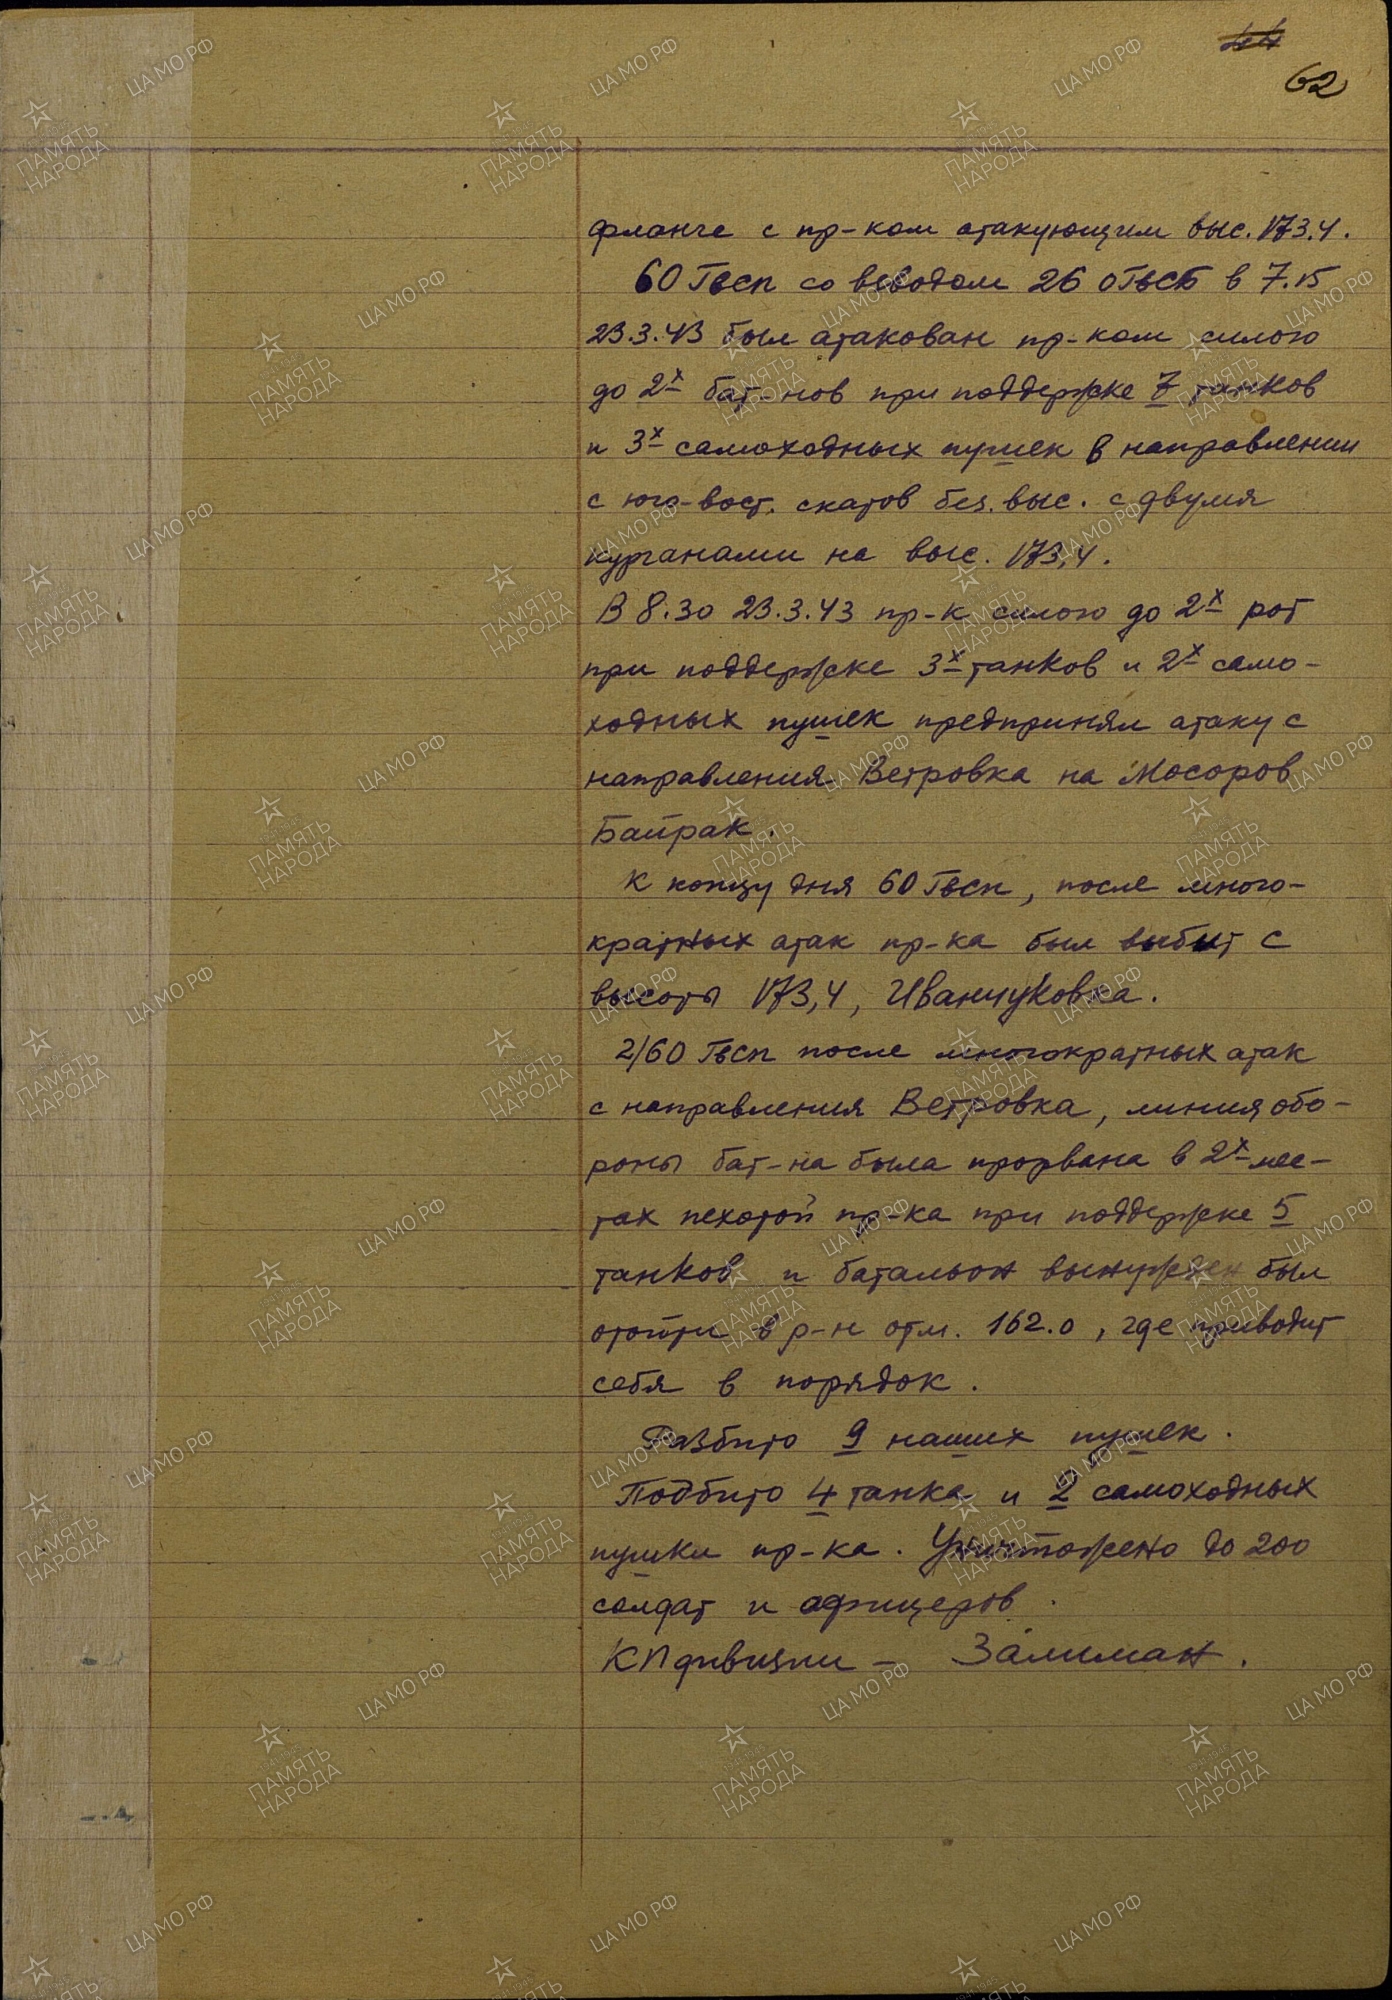 44
62
фланге с пр-ком атакующим выс. 173,4.
60 Гвсп со взводом 26 ОГвСБ в 7.15
23.3.43 был атакован пр-ком силою
до 2х бат-нов при поддержке 7 танков
и 3х самоходных пушек в направлении
с юго-вост. скатов без. выс. с двумя
курганами на выс. 173,4.
В 8.30 23.3.43 пр-к силою до 2х рот
при поддержке 3х танков и 2х само-
ходных пушек предпринял атаку с
направления Ветровка на Мосоров
Байрак.
К концу дня 60 Гвсп, после много-
кратных атак пр-ка был выбит с
высоты 173,4, Иванчуковка.
2/60 Гвсп после многократных атак
с направления Ветровка, линия обо-
роны бат-на была прорвана в 2х мес-
тах пехотой пр-ка при поддержке 5
танков и батальон вынужден был
отойти в р-н отм. 162.0, где приводит
себя в порядок.
Разбито 9 наших пушек.
Подбито 4 танка и 2 самоходных
пушки пр-ка. Уничтожено до 200
солдат и офицеров.
КП дивизии – Залиман.
ЦА МО РФ
ПАМЯТЬ
НАРОДА